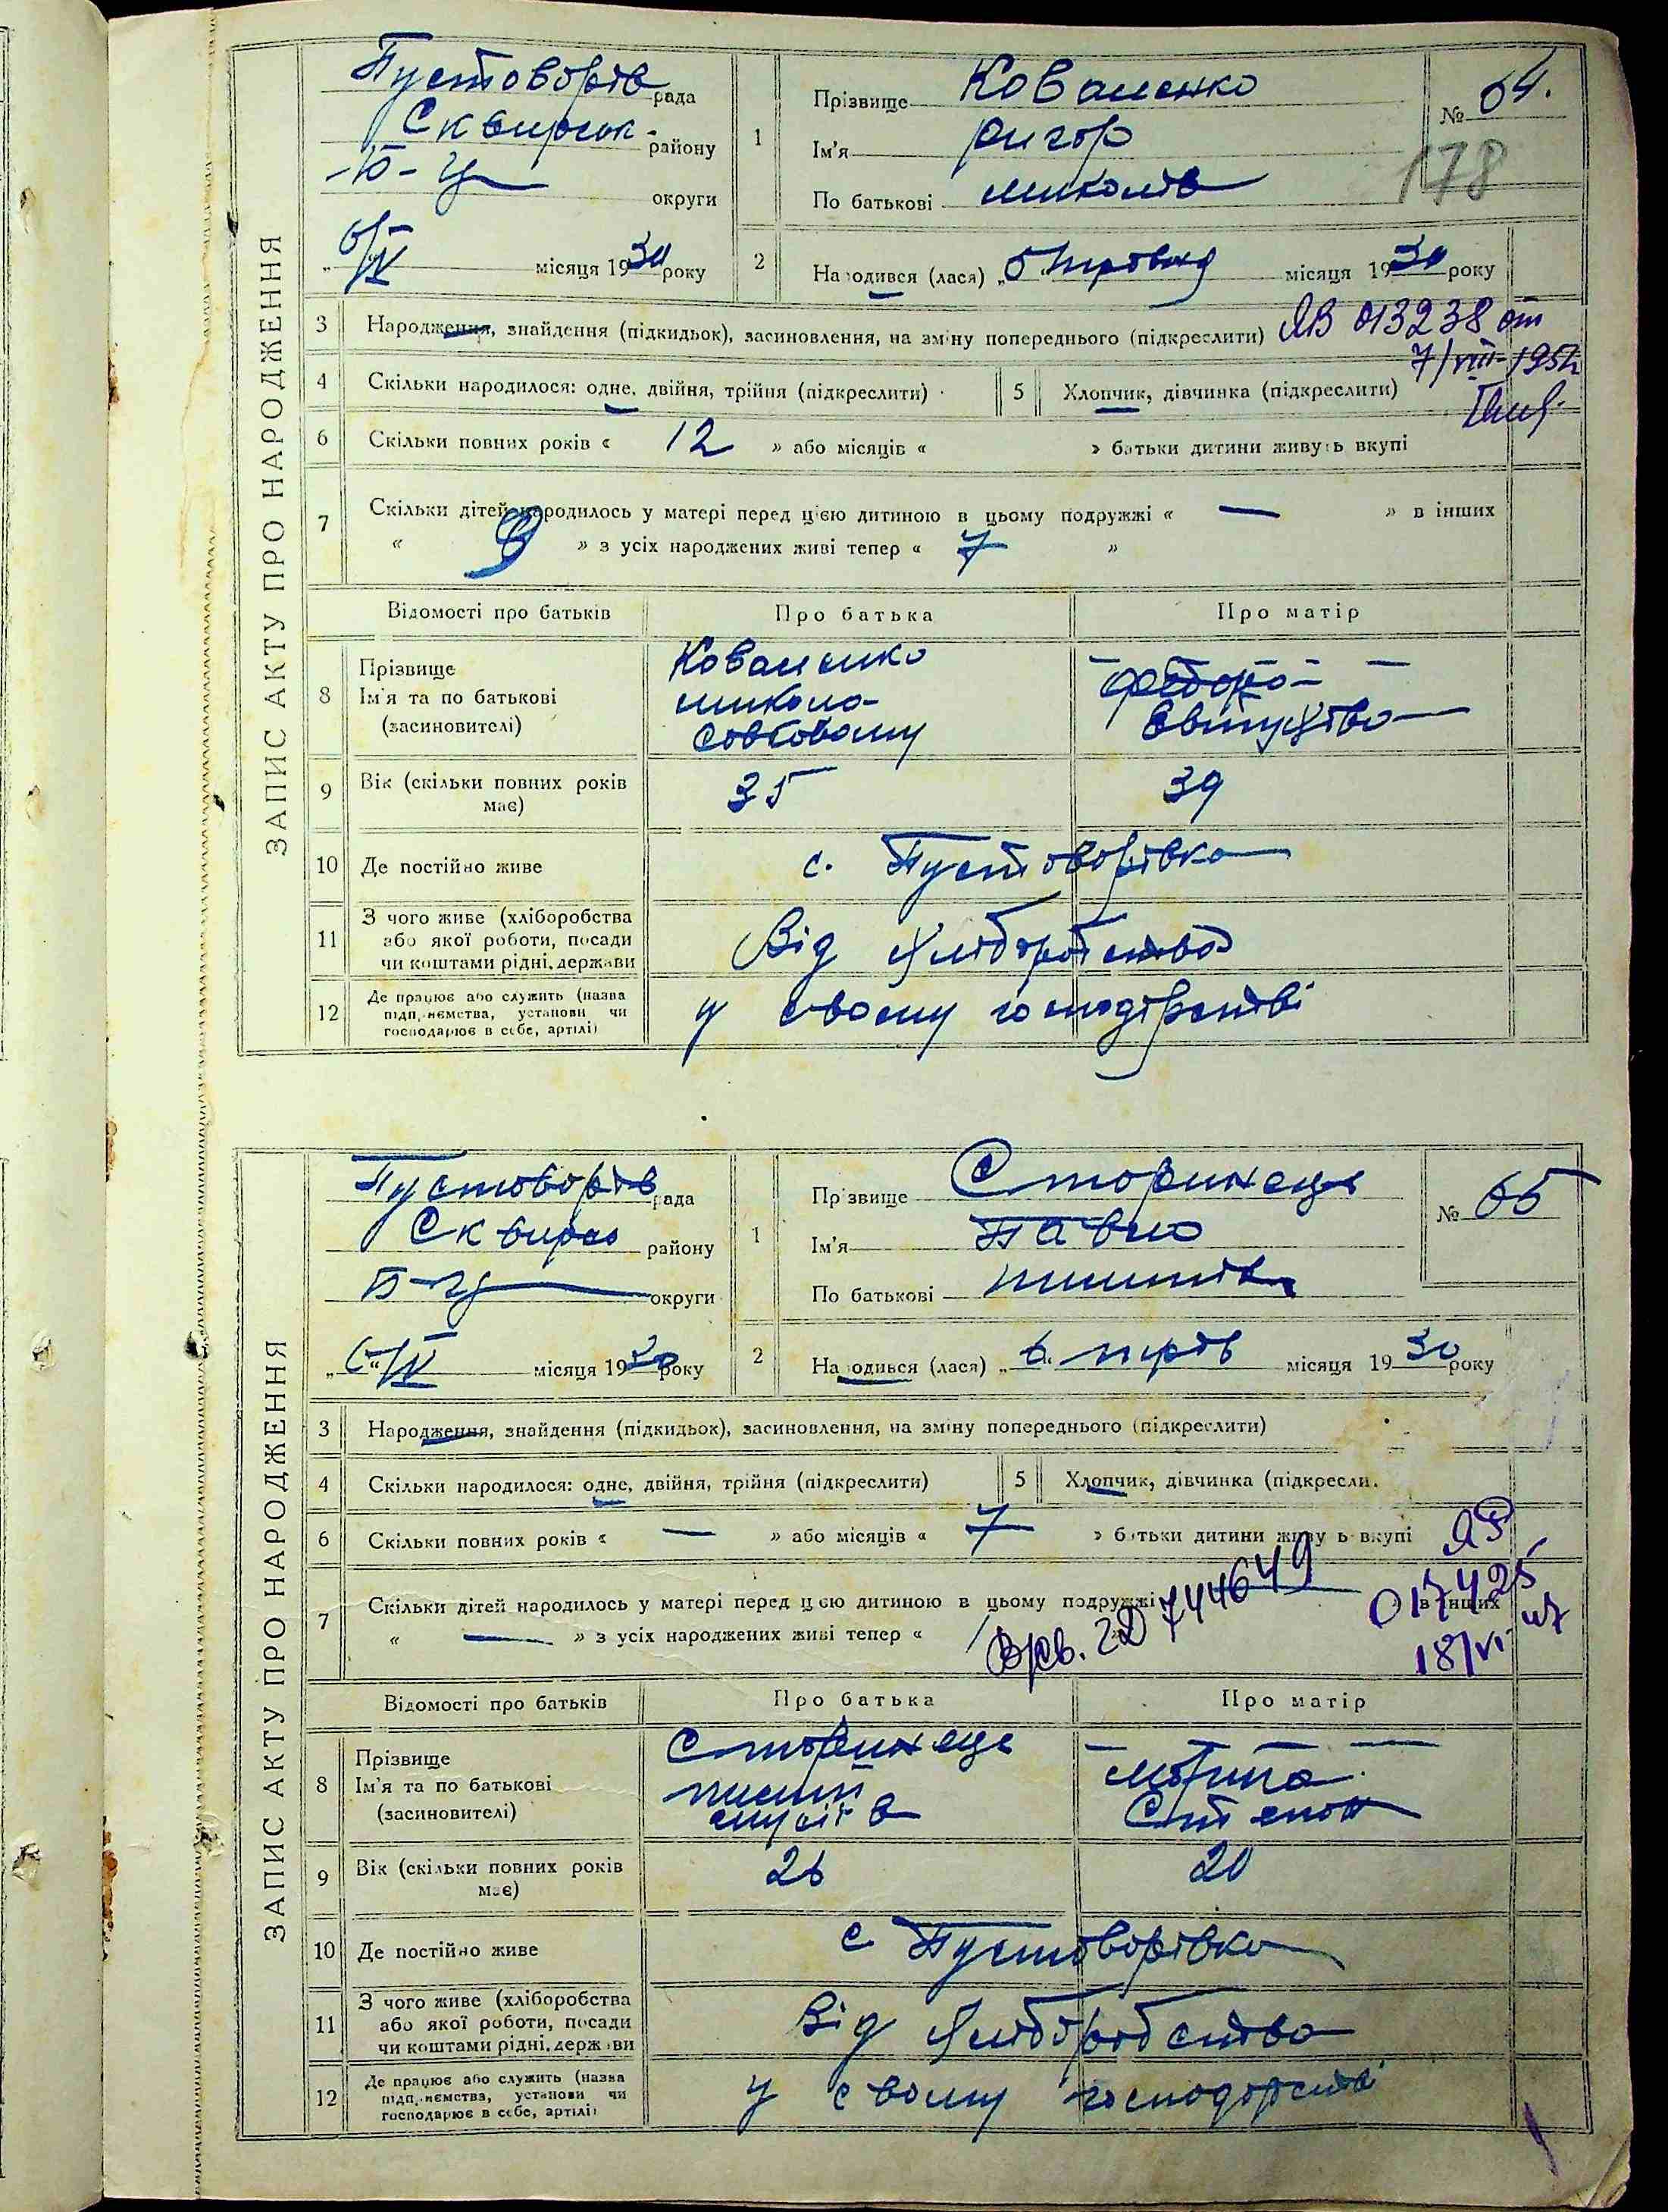 ЗАПИС АКТУ ПРО НАРОДЖЕННЯ
Пустоворів рада
Сквирськ. району
Б-Ц округи
6/IV місяця 1930 року
1
Прізвище Коваленко
Ім'я Ригор
По батькові Миколів
№ 64.
178
2
Народився (лася) „5" місяця 1930 року
3 Народження, знайдення (підкидьок), засиновлення, на зміну попереднього (підкреслити)
ЯВ 013238 от
7/VIII-195
4 Скільки народилося: одне, двійня, трійня (підкреслити)
5 Хлопчик, дівчинка (підкреслити)
6 Скільки повних років « 12 » або місяців « » батьки дитини живуть вкупі
7 Скільки дітей народилось у матері перед цією дитиною в цьому подружжі « — » в інших
« 9 » з усіх народжених живі тепер « 7 »
Відомості про батьків Про батька Про матір
8 Прізвище
Ім'я та по батькові
(засиновителі)
Коваленко
Микола
9 Вік (скільки повних років
має)
35 39
10 Де постійно живе с. Пустоворівка
11 З чого живе (хліборобства
або якої роботи, посади
чи коштами рідні, держави
Від хліборобства
12 Де працює або служить (назва
підприємства, установи чи
господарює в себе, артілі)
у своєму господарстві
ЗАПИС АКТУ ПРО НАРОДЖЕННЯ
Пустоворів рада
Сквирсь району
Б-Ц округи
„6"/IV місяця 1930 року
1
Прізвище Сторижець
Ім'я Павло
По батькові
№ 65
2
Народився (лася) „6" місяця 1930 року
3 Народження, знайдення (підкидьок), засиновлення, на зміну попереднього (підкреслити)
4 Скільки народилося: одне, двійня, трійня (підкреслити)
5 Хлопчик, дівчинка (підкресли.
6 Скільки повних років « — » або місяців « 7 » батьки дитини живуть вкупі
7 Скільки дітей народилось у матері перед цією дитиною в цьому подружжі — » в інших
« — » з усіх народжених живі тепер «
744649
017425
18/VI-47
Відомості про батьків Про батька Про матір
8 Прізвище
Ім'я та по батькові
(засиновителі)
Сторижець
— —
Степон
9 Вік (скільки повних років
має)
26 20
10 Де постійно живе с Пустоворівка
11 З чого живе (хліборобства
або якої роботи, посади
чи коштами рідні, держави
Від хліборобства
12 Де працює або служить (назва
підприємства, установи чи
господарює в себе, артілі)
у свому господарстві